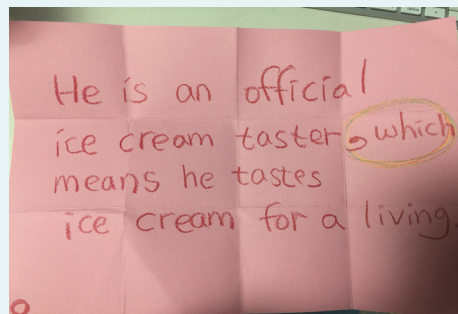 He is an official
ice cream taster, which
means he tastes
ice cream for a living.